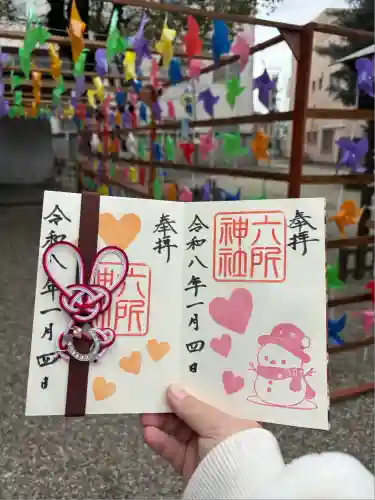 奉拝
六所
神社
令和八年一月四日
奉拝
六所
令和八年一月四日